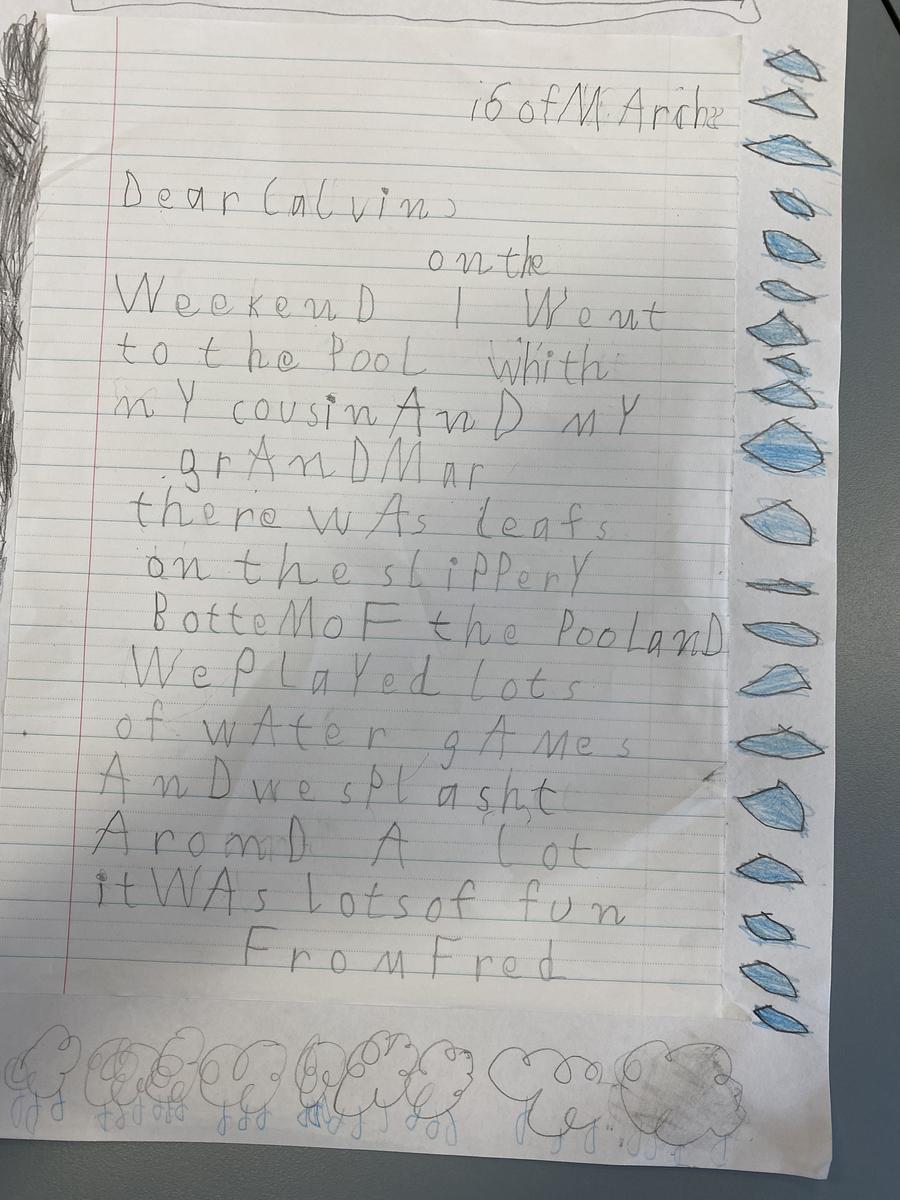 16 of MArch
Dear Calvin,
on the
WeekenD I Went
to the PooL whith
mY cousin AnD mY
grAnDMar
there wAs leafs
on the sliPPerY
BotteM oF the PooL anD
We PlaYed lots
of wAter gAMes
AnD we sPlasht
AromD A lot
it WAs lots of fun
FroM Fred